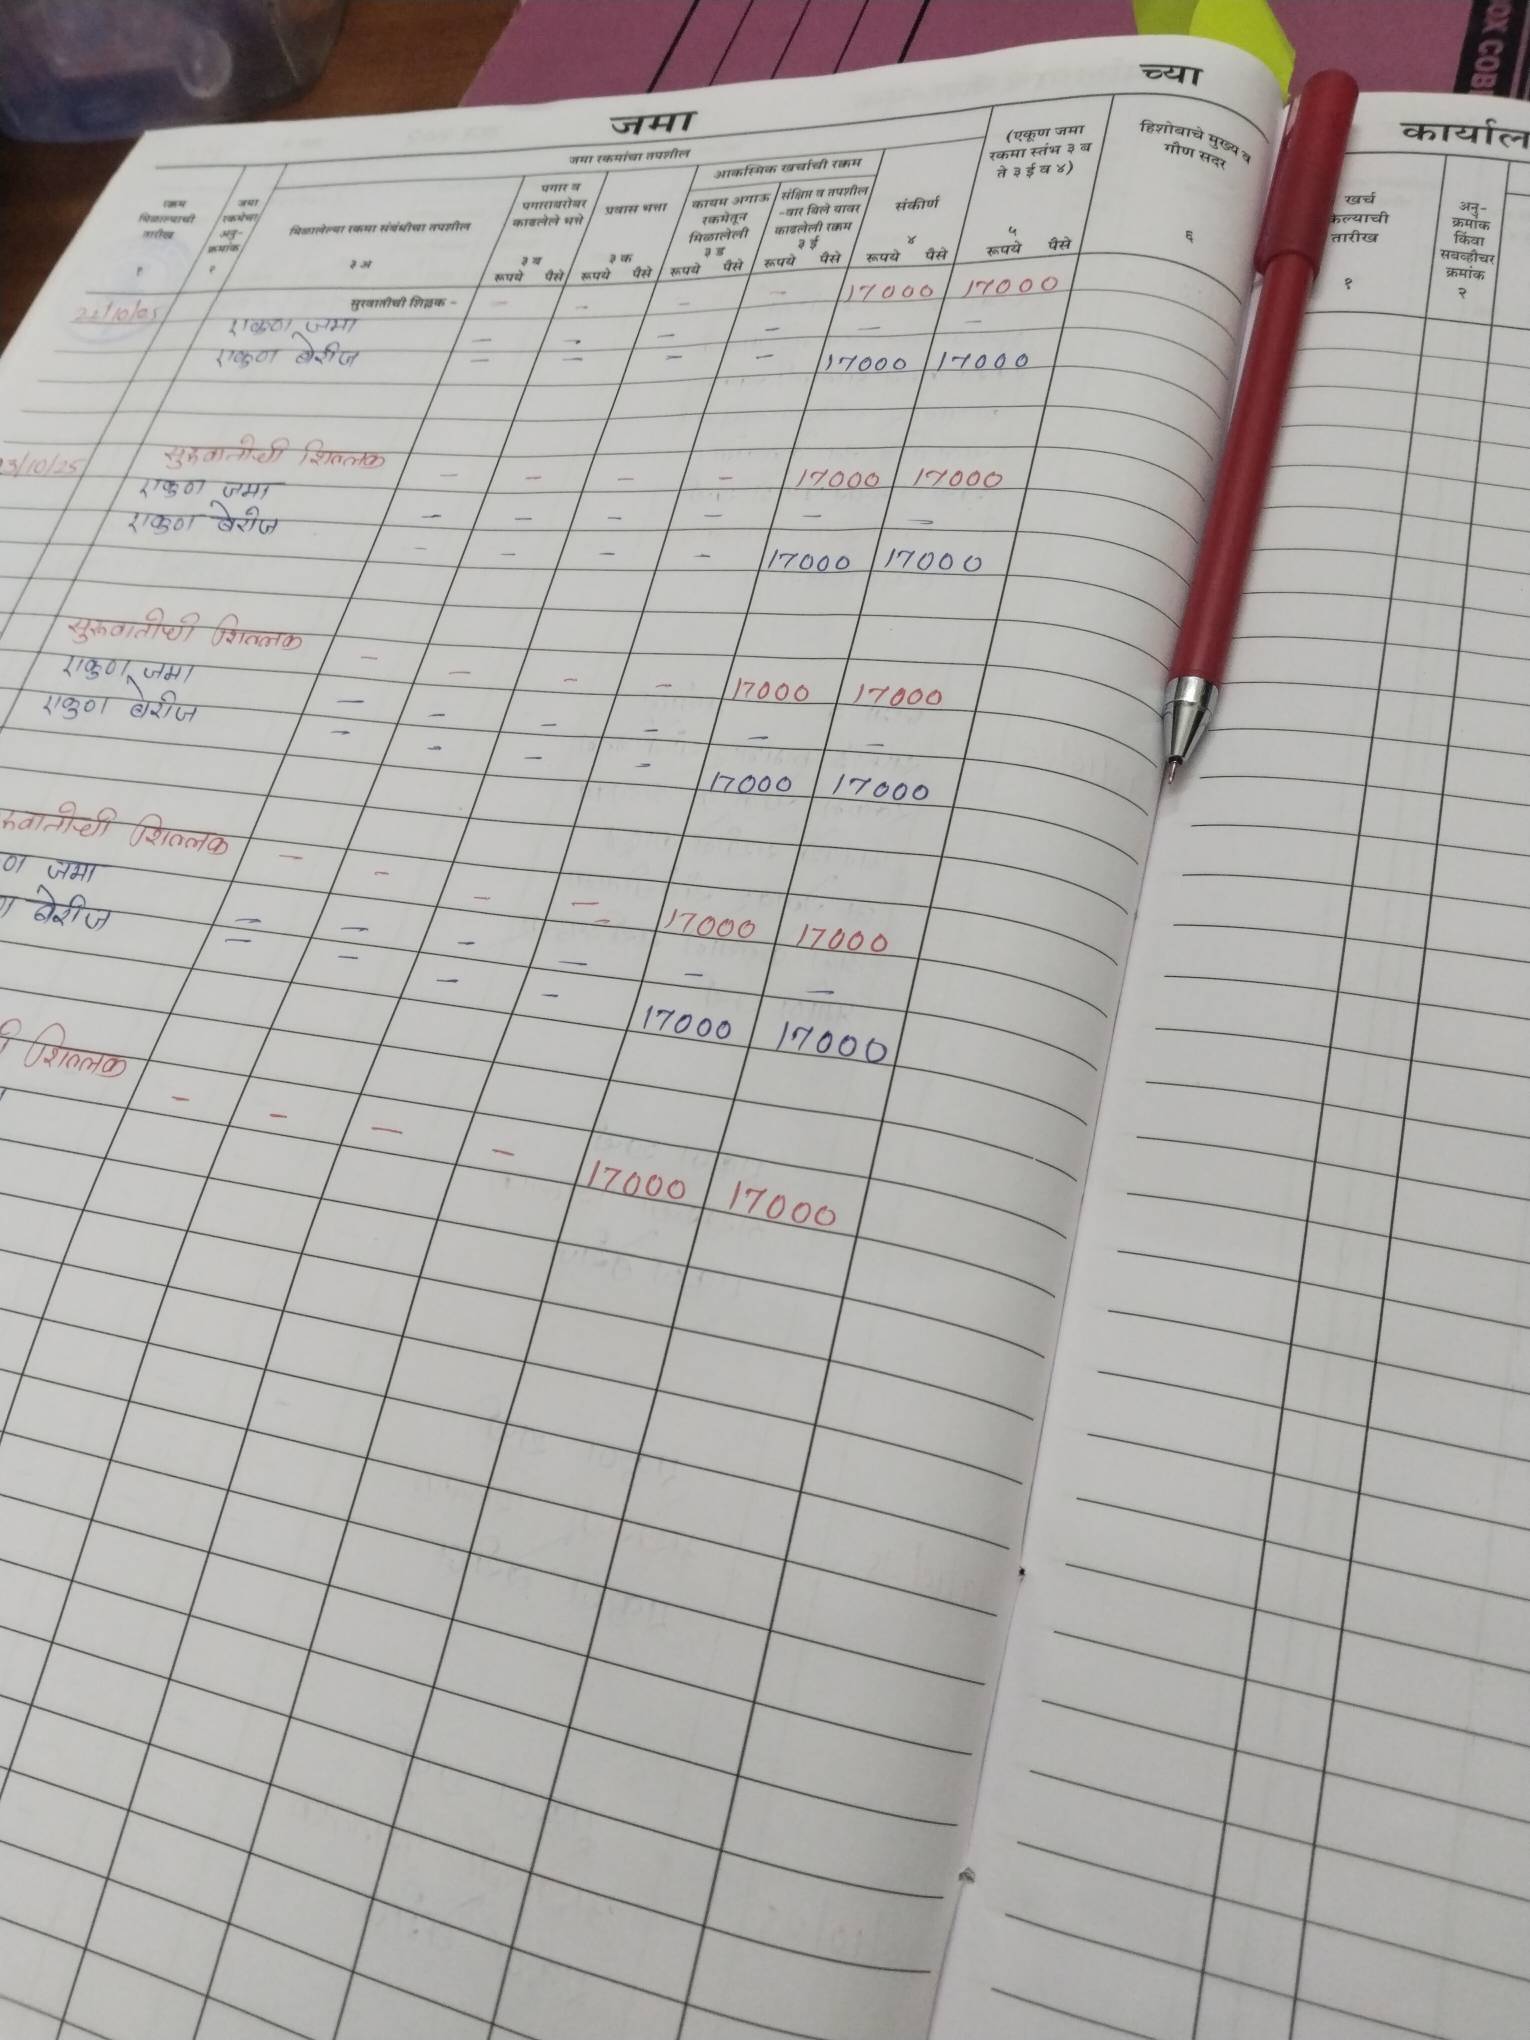 च्या
जमा
जमा रकमांचा तपशील
रक्कम मिळाल्याची तारीख
१
जमा रकमेचा अनु-क्रमांक
२
मिळालेल्या रकमा संबंधीचा तपशील
३ अ
पगार व पगाराबरोबर काढलेले भत्ते
३ ब
रूपये पैसे
प्रवास भत्ता
३ क
रूपये पैसे
आकस्मिक खर्चाची रक्कम
कायम अगाऊ रकमेतून मिळालेली
३ ड
रूपये पैसे
संक्षिप्त व तपशील -वार बिले यावर काढलेली रक्कम
३ ई
रूपये पैसे
संकीर्ण
४
रूपये पैसे
(एकूण जमा रकमा स्तंभ ३ ब ते ३ ई व ४)
५
रूपये पैसे
हिशोबाचे मुख्य व गौण सदर
६
सुरवातीची शिल्लक - - - - - 17000 17000
एकुण जमा - - - - - -
एकुण बेरीज - - - - 17000 17000
3/10/25 सुरुवातीची शिल्लक - - - - 17000 17000
एकुण जमा - - - - - -
एकुण बेरीज - - - - 17000 17000
सुरुवातीची शिल्लक - - - - 17000 17000
एकुण जमा - - - - - -
एकुण बेरीज - - - - 17000 17000
रुवातीची शिल्लक - - - - 17000 17000
ण जमा - - - - - -
ण बेरीज - - - - 17000 17000
ी शिल्लक - - - - 17000 17000
कार्याल
खर्च
केल्याची
तारीख
१
अनु-
क्रमांक
किंवा
सबव्हौचर
क्रमांक
२
OX COB